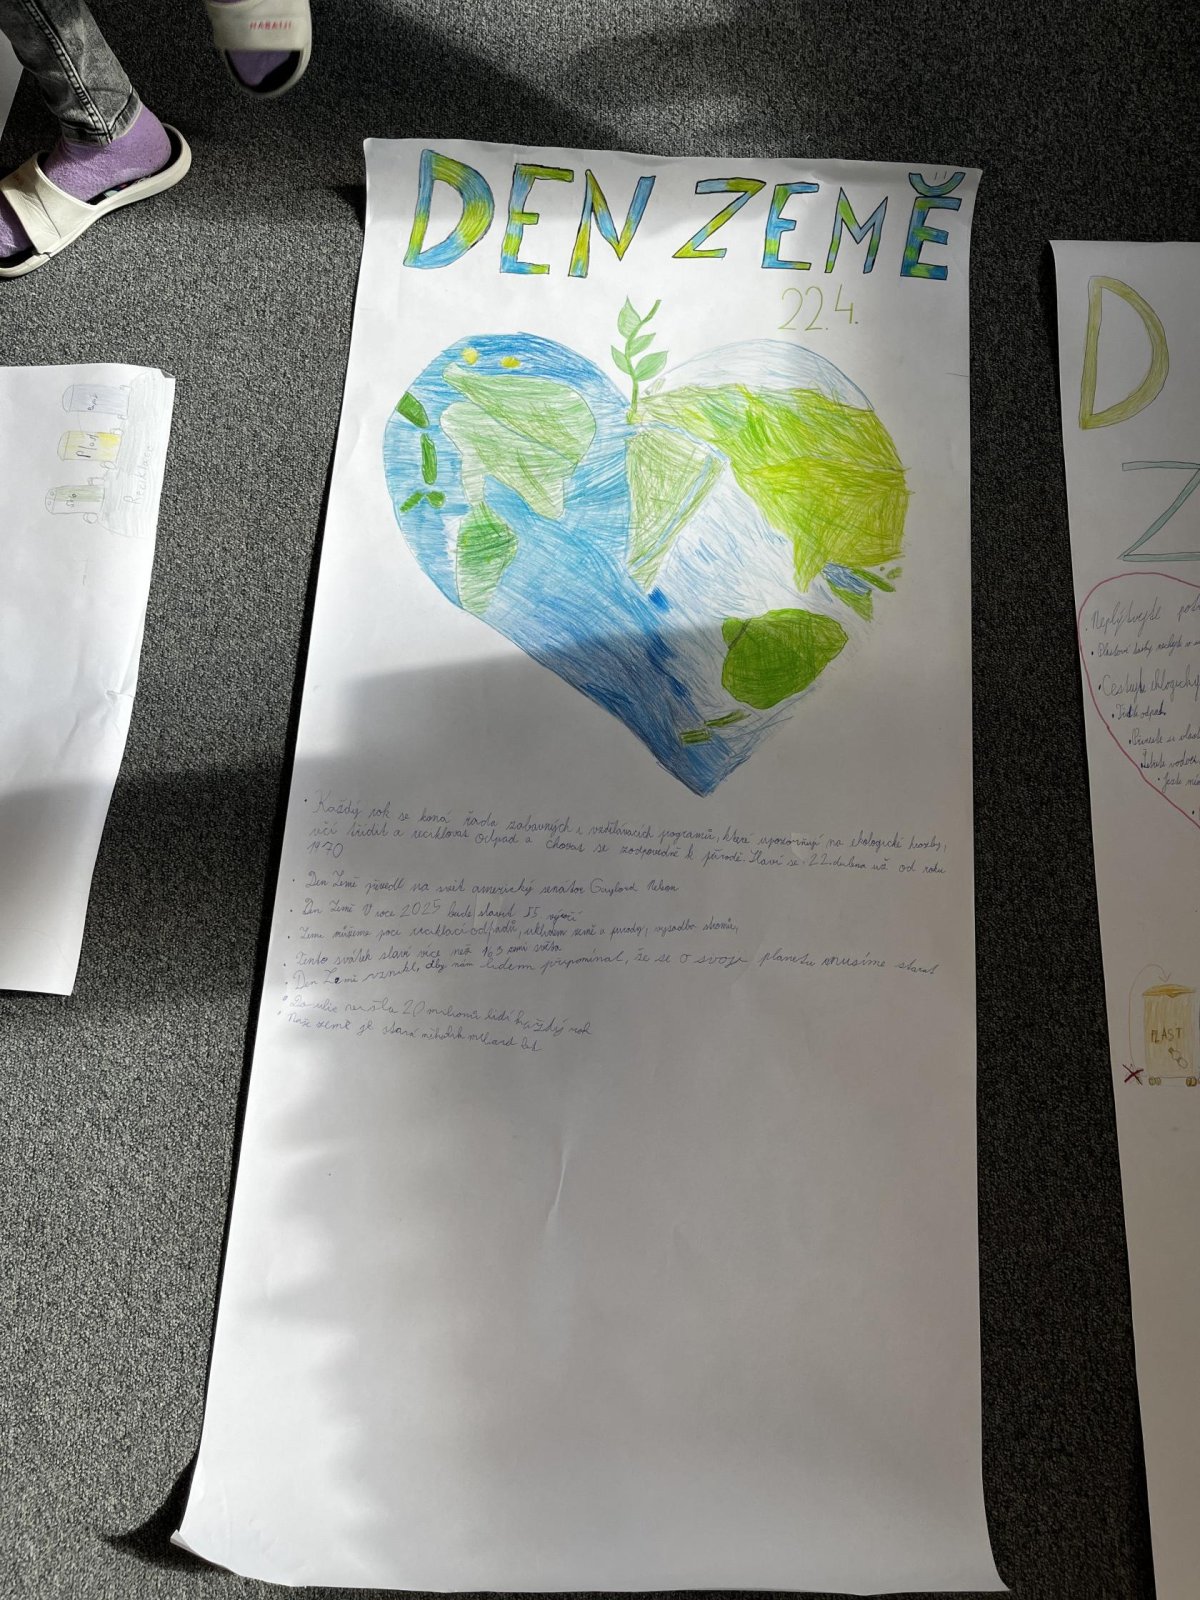 DEN ZEMĚ
22.4.
• Každý rok se koná řada zabavných i vzdělávacích programů, které upozorňují na ekologické hrozby,
učí třídit a recyklovat odpad a chovat se zodpovědně k přírodě. Slaví se 22. dubna už od roku
1970
• Den Země převedl na svět americký senátor Gaylord Nelson
• Den Země V roce 2025 bude slavit 55 výročí
• Zemi můžeme poci reciklací odpadů, uklidem země a přirody, vysadba stromů,
• Tento svátek slaví více než 193 zemí světa
• Den Země vznikl, aby nám lidem připomínal, že se o svojí planetu musíme starat
• Do ulic 20 milionů lidí každý rok
• Naše země je stará několik miliard let
Plast
Bio
Reciklace
D
Z
Neplýtvejte
Cestujte ekologicky
• Třiďte odpad
PLAST